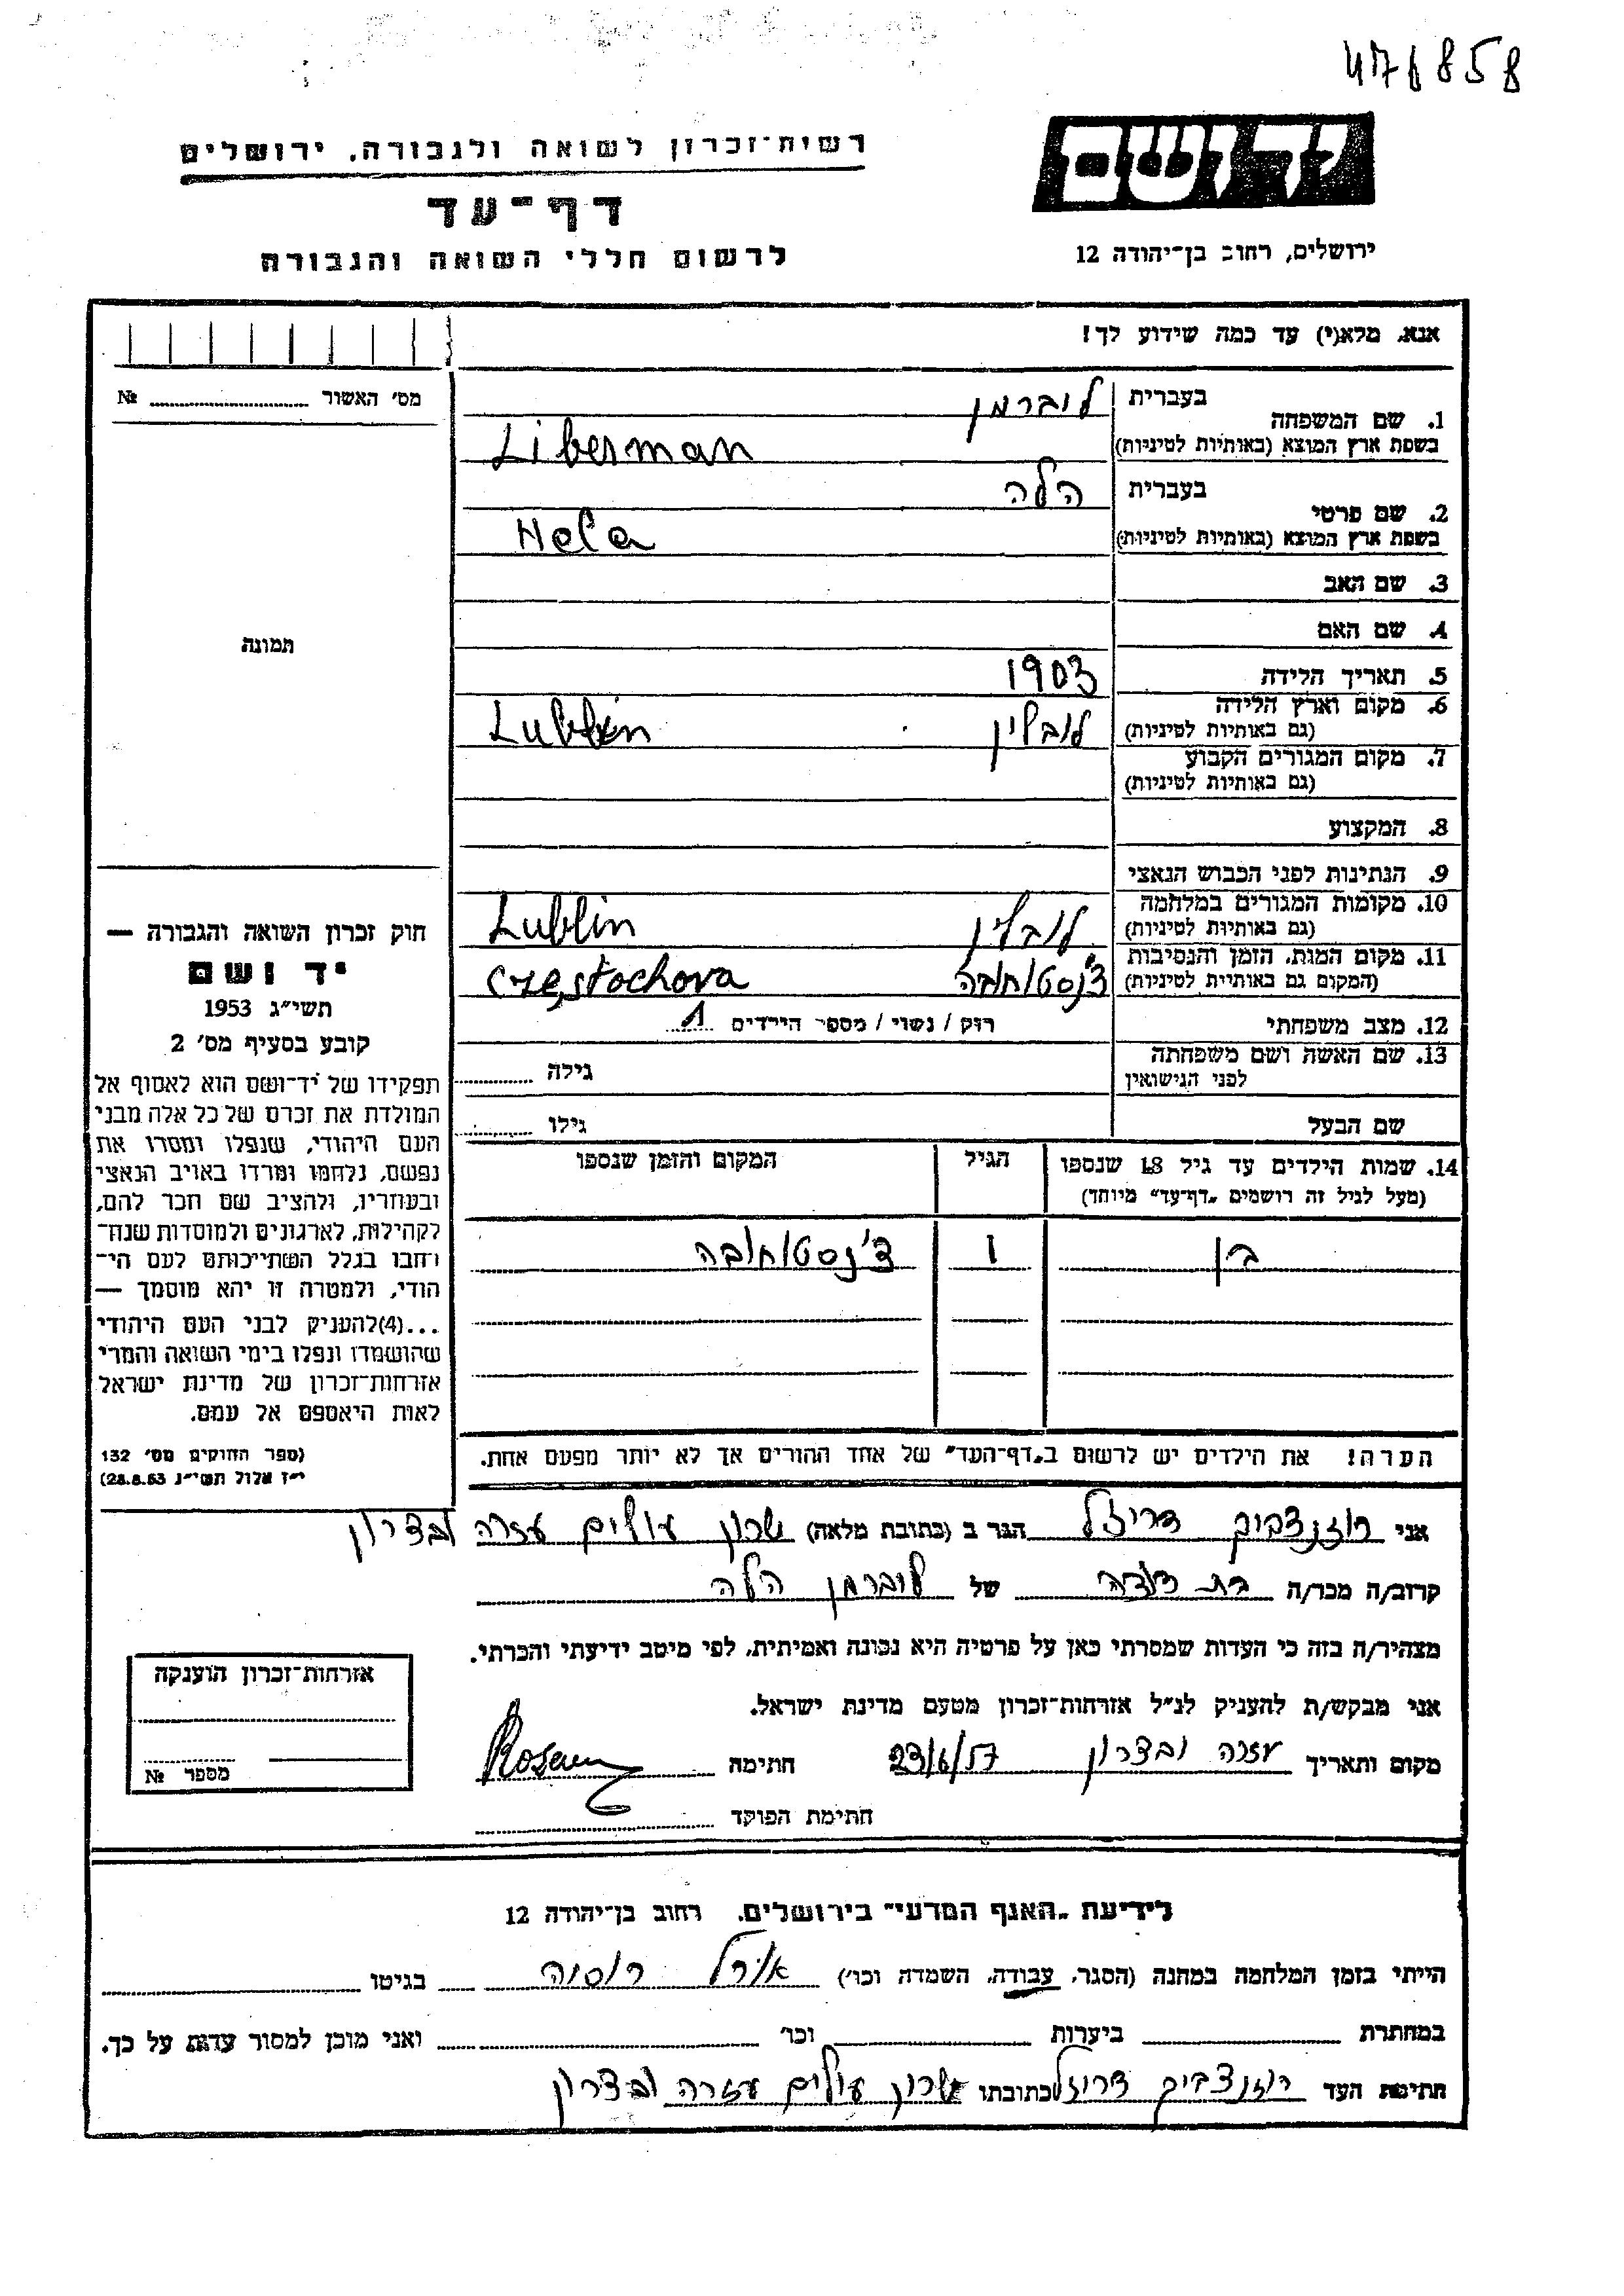 476858
רשות־זכרון לשואה ולגבורה, ירושלים
יד ושם
דף־עד
לרשום חללי השואה והגבורה
ירושלים, רחוב בן־יהודה 12
אנא, מלא(י) עד כמה שידוע לך!
מס׳ האשור № 
תמונה
1. שם המשפחה בעברית לוברמן
בשפת ארץ המוצא (באותיות לטיניות) Liberman
2. שם פרטי בעברית הלה
בשפת ארץ המוצא (באותיות לטיניות) Hela
3. שם האב
4. שם האם
5. תאריך הלידה 1903
6. מקום וארץ הלידה
(גם באותיות לטיניות) לובלין Lublin
7. מקום המגורים הקבוע
(גם באותיות לטיניות)
8. המקצוע
9. הנתינות לפני הכבוש הנאצי
10. מקומות המגורים במלחמה
(גם באותיות לטיניות) לובלין Lublin
11. מקום המות, הזמן והנסיבות
(המקום גם באותיות לטיניות) צ'נסטוחובה Częstochova
12. מצב משפחתי רוק / נשוי / מספר הילדים 1
13. שם האשה ושם משפחתה
לפני הנישואין גילה
שם הבעל גילו
14. שמות הילדים עד גיל 18 שנספו הגיל המקום והזמן שנספו
(מעל לגיל זה רושמים „דף־עד״ מיוחד)
בן 1 צ'נסטוחובה
הערה! את הילדים יש לרשום ב„דף־העד״ של אחד ההורים אך לא יותר מפעם אחת.
חוק זכרון השואה והגבורה —
יד ושם
תשי״ג 1953
קובע בסעיף מס׳ 2
תפקידו של יד־ושם הוא לאסוף אל
המולדת את זכרם של כל אלה מבני
העם היהודי, שנפלו ומסרו את
נפשם, נלחמו ומרדו באויב הנאצי
ובעוזריו, ולהציב שם וזכר להם,
לקהילות, לארגונים ולמוסדות שנח־
רבו בגלל השתייכותם לעם הי־
הודי, ולמטרה זו יהא מוסמך —
...(4)להעניק לבני העם היהודי
שהושמדו ונפלו בימי השואה והמרי
אזרחות־זכרון של מדינת ישראל
לאות היאספם אל עמם.
(ספר החוקים מס׳ 132
י״ז אלול תשי״ג 28.8.53)
אני רוזנצביג הגר ב (כתובת מלאה) שכון עולים עזרה ובצרון
קרוב/ה מכר/ה בת דודה של לוברמן הלה
מצהיר/ה בזה כי העדות שמסרתי כאן על פרטיה היא נכונה ואמיתית, לפי מיטב ידיעתי והכרתי.
אני מבקש/ת להעניק לנ״ל אזרחות־זכרון מטעם מדינת ישראל.
מקום ותאריך עזרה ובצרון 23/6/57 חתימה
חתימת הפוקד
אזרחות־זכרון הוענקה
מספר №
לידיעת „האגף המדעי״ בירושלים, רחוב בן־יהודה 12
הייתי בזמן המלחמה במחנה (הסגר, עבודה, השמדה וכו׳) אורל רוסיה בגיטו
במחתרת ביערות וכו׳ ואני מוכן למסור עדות על כך.
חתימת העד רוזנצביג כתובתו שכון עולים עזרה ובצרון